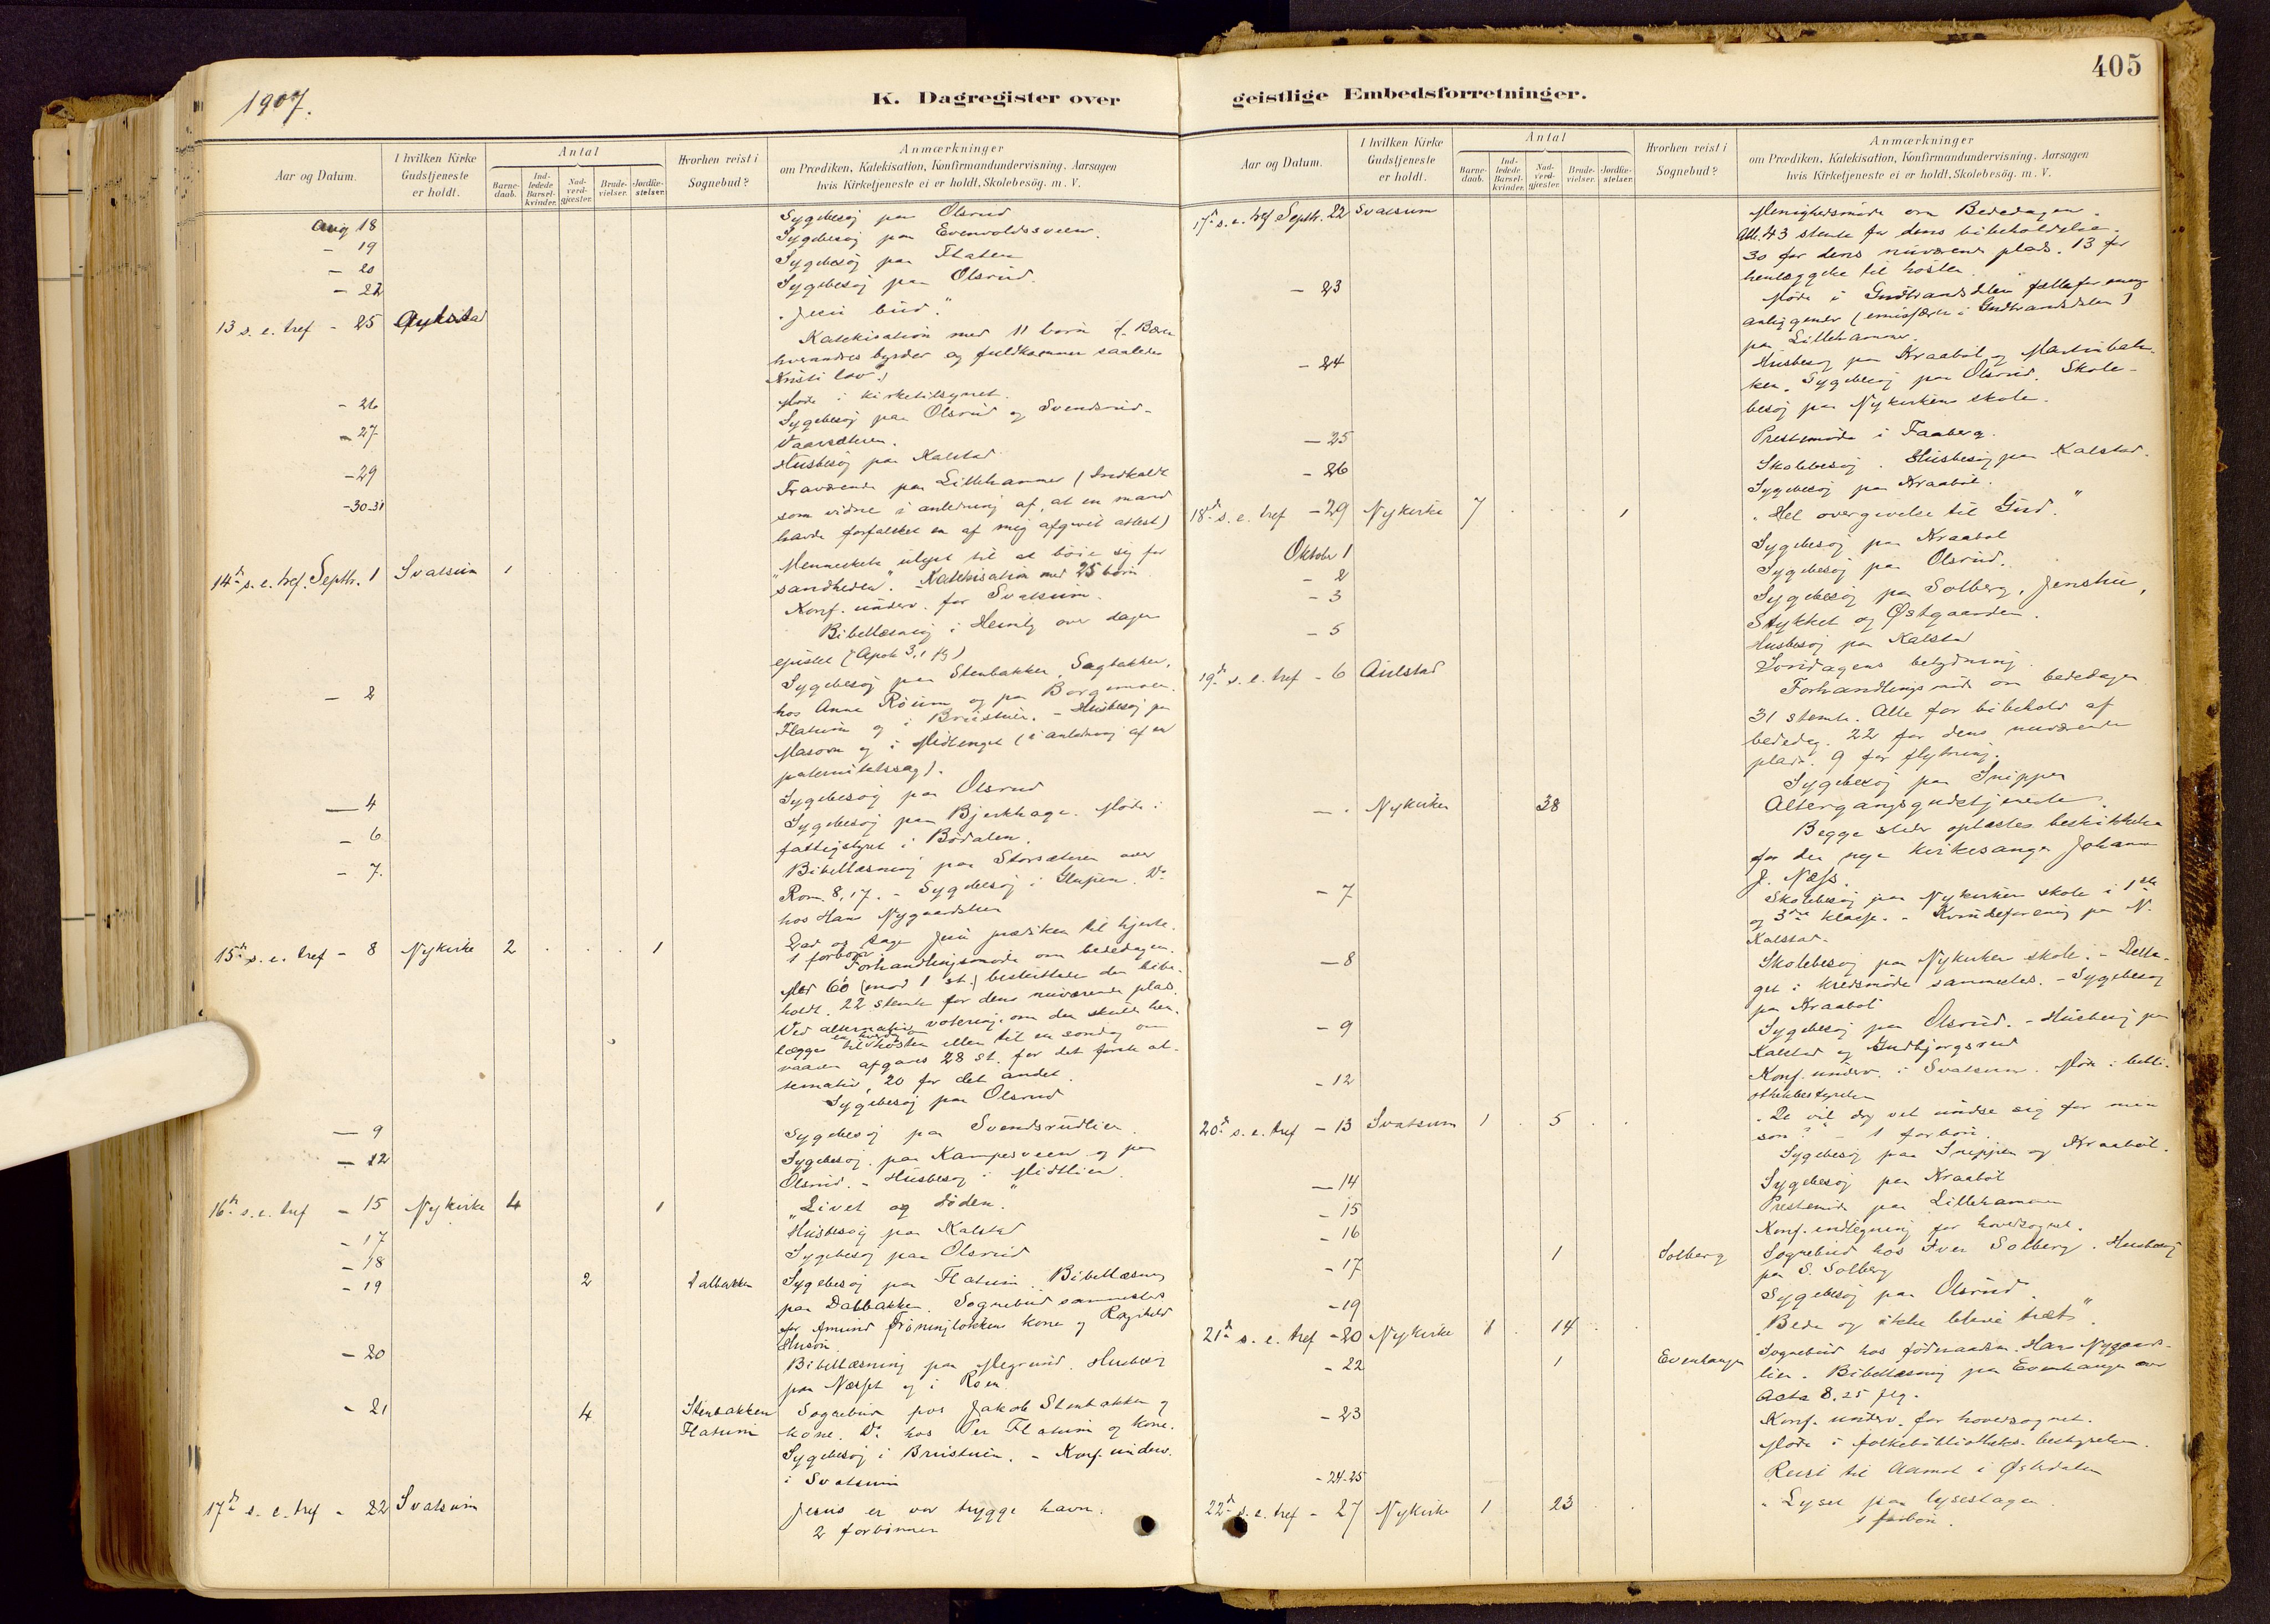 1907.
K. Dagregister over
Aar og Datum.
I hvilken Kirke Gudstjeneste er holdt.
Antal
Barnedaab.
Indledede Barselkvinder.
Nadverdgjæster.
Brudevielser.
Jordfæstelser.
Hvorhen reist i Sognebud?
Anmærkninger
om Prædiken, Katekisation, Konfirmandundervisning, Aarsagen
hvis Kirketjeneste ei er holdt, Skolebesög. m. V.
Aug 18 Sygebesøg paa Olsrud
- 19 Sygebesøg paa Evenvoldssveen.
- 20 Sygebesøg paa Flaten
- 22 Sygebesøg paa Olsrud.
13 s. e. tref - 25 "Jesu bud".
Katekisation med 11 børn (. Bære
hverandres byrder og fuldkommer saaledes
Kristi lov.)
- 26 Møde i kirketilsynet.
- 27 Sygebesøg paa Olsrud og Svendsrud-
Vaarsæteren.
- 29 Husbesøg paa Kalstad
- 30-31 Fraværende paa Lillehammer (Indkaldt
som vidne i anledning af, at en mand
havde forfalsket en af mig afgivet attest)
14de s. e. tref. Septbr. 1 Svatsum 1 "Menneskets ulyst til at bøie sig for
sandheden". - Katekisation med 25 børn
Konf. underv. for Svatsum.
Bibellæsning i Heimly over dagens
epistel (Apok 3,1 flg)
- 2 Sygebesøg paa Stenbakken, Sagbakken,
hos Anne Röium og paa Borgemoen.
Flatum og i Brustuen. - Husbesøg paa
Masovn og i Midtenget (i anledning af en
paternitetssag).
- 4 Sygebesøg paa Olsrud
- 6 Sygebesøg paa Bjerkhage. Møde i
fattigstyret i Bödalen.
- 7. Bibellæsning paa Storsæteren over
Rom. 8, 17. - Sygebesøg i Do
hos Hans Nygaardslien
15de s. e. tref - 8 Nykirke 2 1 Lad os tage Jesu prædiken til hjerte.
1 forbøn.
Forhandlingsmøde om bededagen.
Med 60 (mod 1 st.) besluttedes den bibe-
holdt. 22 stemte for dens nuværende plads.
Ved alternativ votering om den skulde hen-
lægges til høsten eller til en søndag om
vaaren afgaves 28 st. for det første al-
ternativ, 20 for det andet.
Sygebesøg paa Olsrud
- 9 Sygebesøg paa Svendsrudlien.
- 12 Sygebesøg paa Kampesveen og paa
Olsrud. - Husbesøg i Midtlien.
16de s. e. tref - 15 Nykirke 4 1 "Livet og døden."
- 17 Husbesøg paa Kalstad
- 18 Sygebesøg paa Olsrud
- 19 2 Dalbakken Sygebesøg paa Flatum. Bibellæsning
paa Dalbakken. Sognebud sammesteds
for Amund Fröningløkkens kone og Ragnhild
- 20 Bibellæsning paa Megrund. Husbesøg
paa og i Roen.
- 21 4 Stenbakken Sognebud hos Jakob Stenbakken og
Flatum kone. Do hos Per Flatum og kone.
Sygebesøg i Brustuen. - Konf. underv.
i Svatsum
17de s. e. tref - 22 Svatsum Jesus er vor trygge havn.
2 forbønner
405
geistlige Embedsforretninger.
Aar og Datum.
I hvilken Kirke Gudstjeneste er holdt.
Antal
Barnedaab.
Indledede Barselkvinder.
Nadverdgjæster.
Brudevielser.
Jordfæstelser.
Hvorhen reist i Sognebud?
Anmærkninger
om Prædiken, Katekisation, Konfirmandundervisning, Aarsagen
hvis Kirketjeneste ei er holdt, Skolebesög. m. V.
17de s. e. tref Septbr. 22 Svatsum Menighedsmøde om Bededagen.
Alle 43 stemte for dens bibeholdelse.
30 for dens nuværende plads. 13 for
henlæggelse til høsten.
- 23 Møde i Gudbrandsdalens
anliggender ( i Gudbrandsdalen)
paa Lillehammer.
- 24 Husbesøg paa Kraabøl og Martinbak-
ken. Sygebesøg paa Olsrud. Skole-
besøg paa Nykirkens skole.
- 25 Prestemøde i Faaberg.
- 26 Skolebesøg. Husbesøg paa Kalstad.
Sygebesøg paa Kraabøl.
18de s. e. tref - 29 Nykirke 7 1 "Hel overgivelse til Gud."
Oktober 1 Sygebesøg paa Kraabøl
- 2 Sygebesøg paa Olsrud.
- 3 Sygebesøg paa Solberg, Jenstu,
Stykket og Østgaarden.
- 5 Husbesøg paa Kalstad
19de s. e. tref - 6 Aulstad Søndagens betydning.
Forhandlingsmøde om bededagen
31 stemte. Alle for bibehold af
bededag. 22 for dens nuværende
plads. 9 for flytning.
Sygebesøg paa Snippen
- . Nykirken 38 Altergangsgudstjeneste.
Begge steder oplæstes beskikkelse
for den nye kirkesanger Johann
J. Næss.
- 7 Skolebesøg paa Nykirken skole i 1ste
og 3die klasse. - Kvindeforening paa N.
Kalstad.
- 8 Skolebesøg paa Nykirken skole. - Delta-
get i kredsmøde sammesteds. - Sygebesøg
paa Kraabøl
- 9 Sygebesøg paa Olsrud. - Husbesøg paa
Kalstad og Gudbjørgsrud
- 12 Konf. underv. i Svatsum. Møde i bibli-
othekbestyrelsen
20de s. e. tref - 13 Svatsum 1 5 "De vil dog vel undse sig for min
søn?" - 1 forbøn.
Sygebesøg paa Snippen og Kraabøl.
- 14 Sygebesøg paa Kraabøl
- 15 Prestemøde paa Lillehammer
- 16 Konf. indtegning for hovedsognet.
- 17 1 Solberg Sognebud hos Iver Solberg. Husbesøg
paa S. Solberg
- 19 Sygebesøg paa Olsrud.
21de s. e. tref - 20 Nykirke 1 14 "Bede og ikke blive træt".
- 22 1 Evenhaugen Sognebud hos Hans Nygaards-
lien. Bibellæsning paa Evenhaugen over
Acta 8, 25 flg.
- 23 Konf. underv. for hovedsognet.
Møde i folkebiblioteks-bestyrelsen.
- 24-25 Reist til Aamot i Østerdalen
22de s. e. tref - 27 Nykirke 1 23 "Lyset paa lysestagen.
1 forbøn.